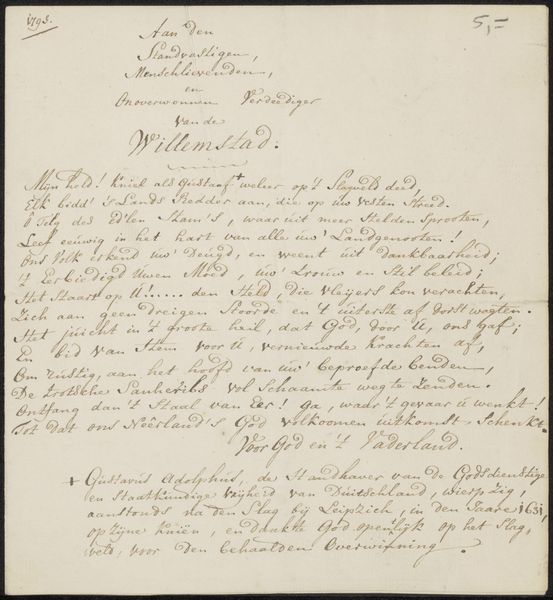 1793.
5,=
Aan den
Standvastigen,
Menschlievenden,
en
Onoverwonnen Verdediger
van de
Willemstad.
Mijn held! kniel als Gustaaf + weleer op 't Slagveld deed,
Elk bidd' 's Lands Redder aan, die op uw vesten Streed.
ô Telg des Ed'len Stam's, waar uit meer Helden Sprooten,
Leef eeuwig in het hart van alle uw' Landgenooten!
Ons Volk erkend uw' Deugd, en weent uit dankbaarheid;
't Eerbiedigd Uwen Moed, uw' Trouw en Stil beleid;
Het Staart op U!..... den Held, die vleijers kon verachten,
Zich aan geen dreigen Stoorde en 't uiterste af dorst wagten.
Het juicht in 't groote heil, dat God, door U, ons gaf;
En bid van Hem voor U, vernieuwde Krachten af,
Om rustig, aan het hoofd van uw' beproefde benden,
De trotsche Sanheribs vol Schaamte weg te Zenden.
Ontfang dan 't Staal van Eer! Ga, waar 't gevaar U wenkt!
Tot dat ons Neêrland's God volkoomen uitkomst Schenkt.
Voor God en 't Vaderland.
+ Gustavus Adolphus, de Handhaver van de Godsdienstige
en Staatkundige vrijheid van Duitschland, wierp zig,
aanstonds na den Slag bij Leipzich, in den Jaare 1631,
op zijne knien, en dankte God openlijk op het Slag,
veld, voor den behaalden Overwinning.